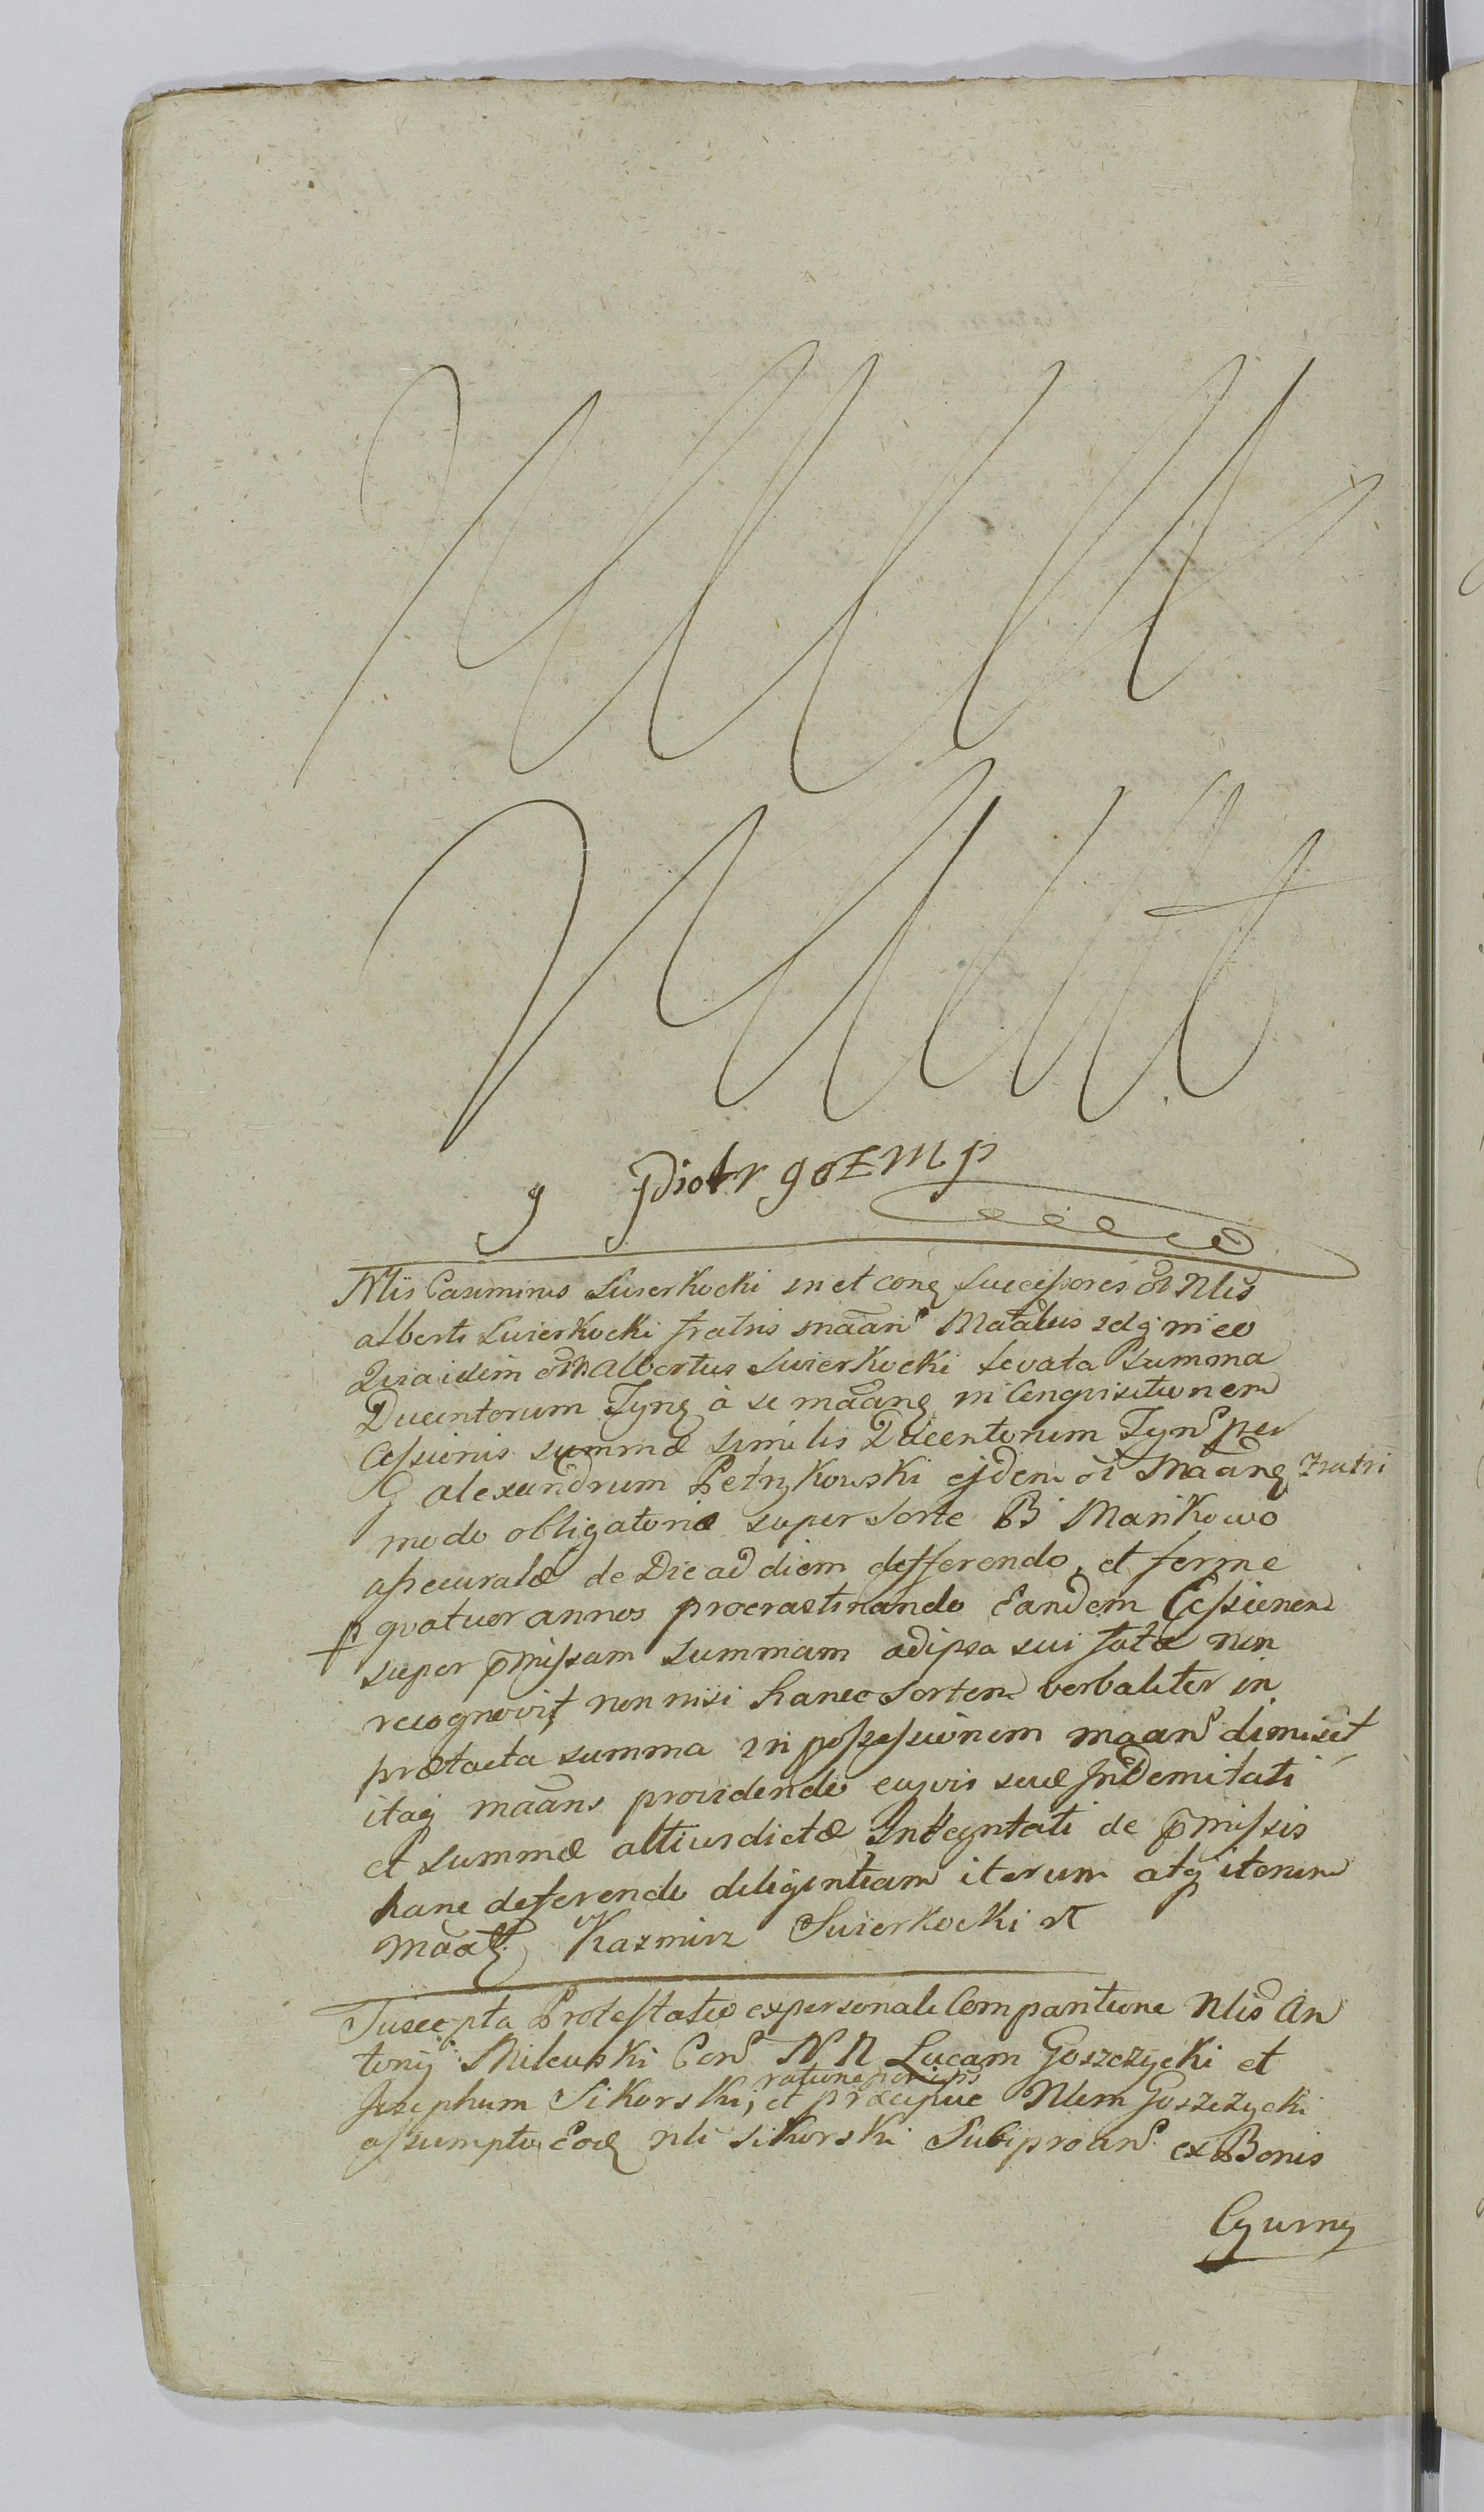 Piotr goz mp
Nlis Casimirus Swierkocki in et conq successores ol Nlis
alberti Swierkocki fratris maan Matalus
Quia idem olim Albertus Swierkocki levata Summa
Ducentorum Tynq à se maanq in Conqvisitionem
Cessionis summæ similis Ducentorum Tyn per
G alexandrum Petrykowski ejdem ol Maanq Fratri
modo obligatoriæ super Sorte B Mańkowo
assecuratæ de Die ad diem defferendo, et ferme
quatuor annos procrastinando Eandem Cessionem
super pmissam summam ad ipsa sui fata non
recognovit, non nisi hance Sortem verbaliter in
prætacta summa in possessionem maan dimisit
itaq maans providendo cujvis suæ Indemitati
et summæ altius dictæ Integritati de pmissis
hanc deferendo diligentiam iterum atq iterum
maatt Kazmirz Swierkocki
Suscepta Protestatio ex personali Comparitione Nlis An
tonij Milewski Con N N Lucam Goszczycki et
ratione
Josephum Sikorski, et præcipue Nlem Goszczycki
assumpto Eoq nli Sikorski Subiproan ex Bonis